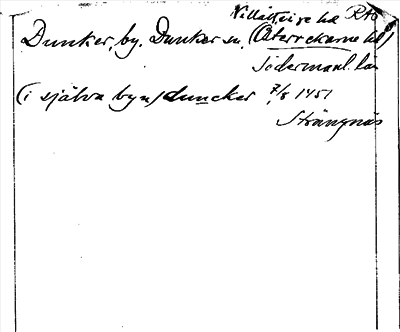 Villåttinge hd RAÖ
Dunker, by. Dunker sn. (Österrekarne hd)
Södermanl. län
(i själva byn) duncker 7/8 1451
Strängnäs